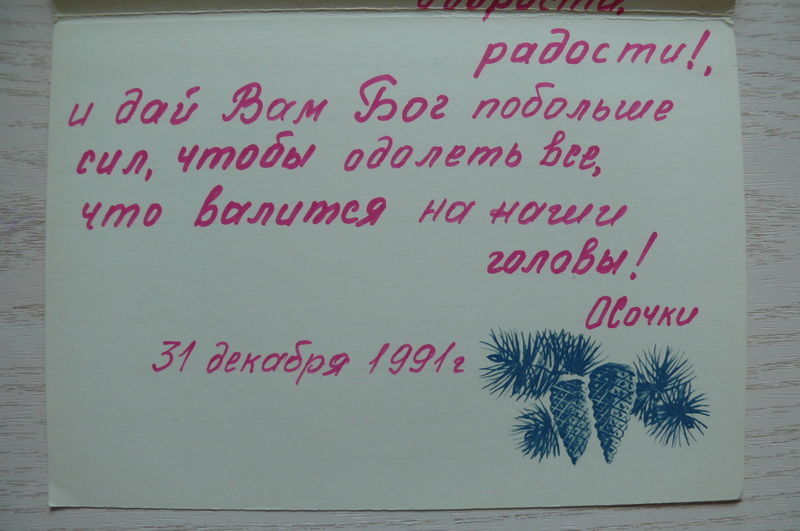 радости!,
и дай Вам Бог побольше
сил, чтобы одолеть все,
что валится на наши
головы!
ОСочки
31 декабря 1991г